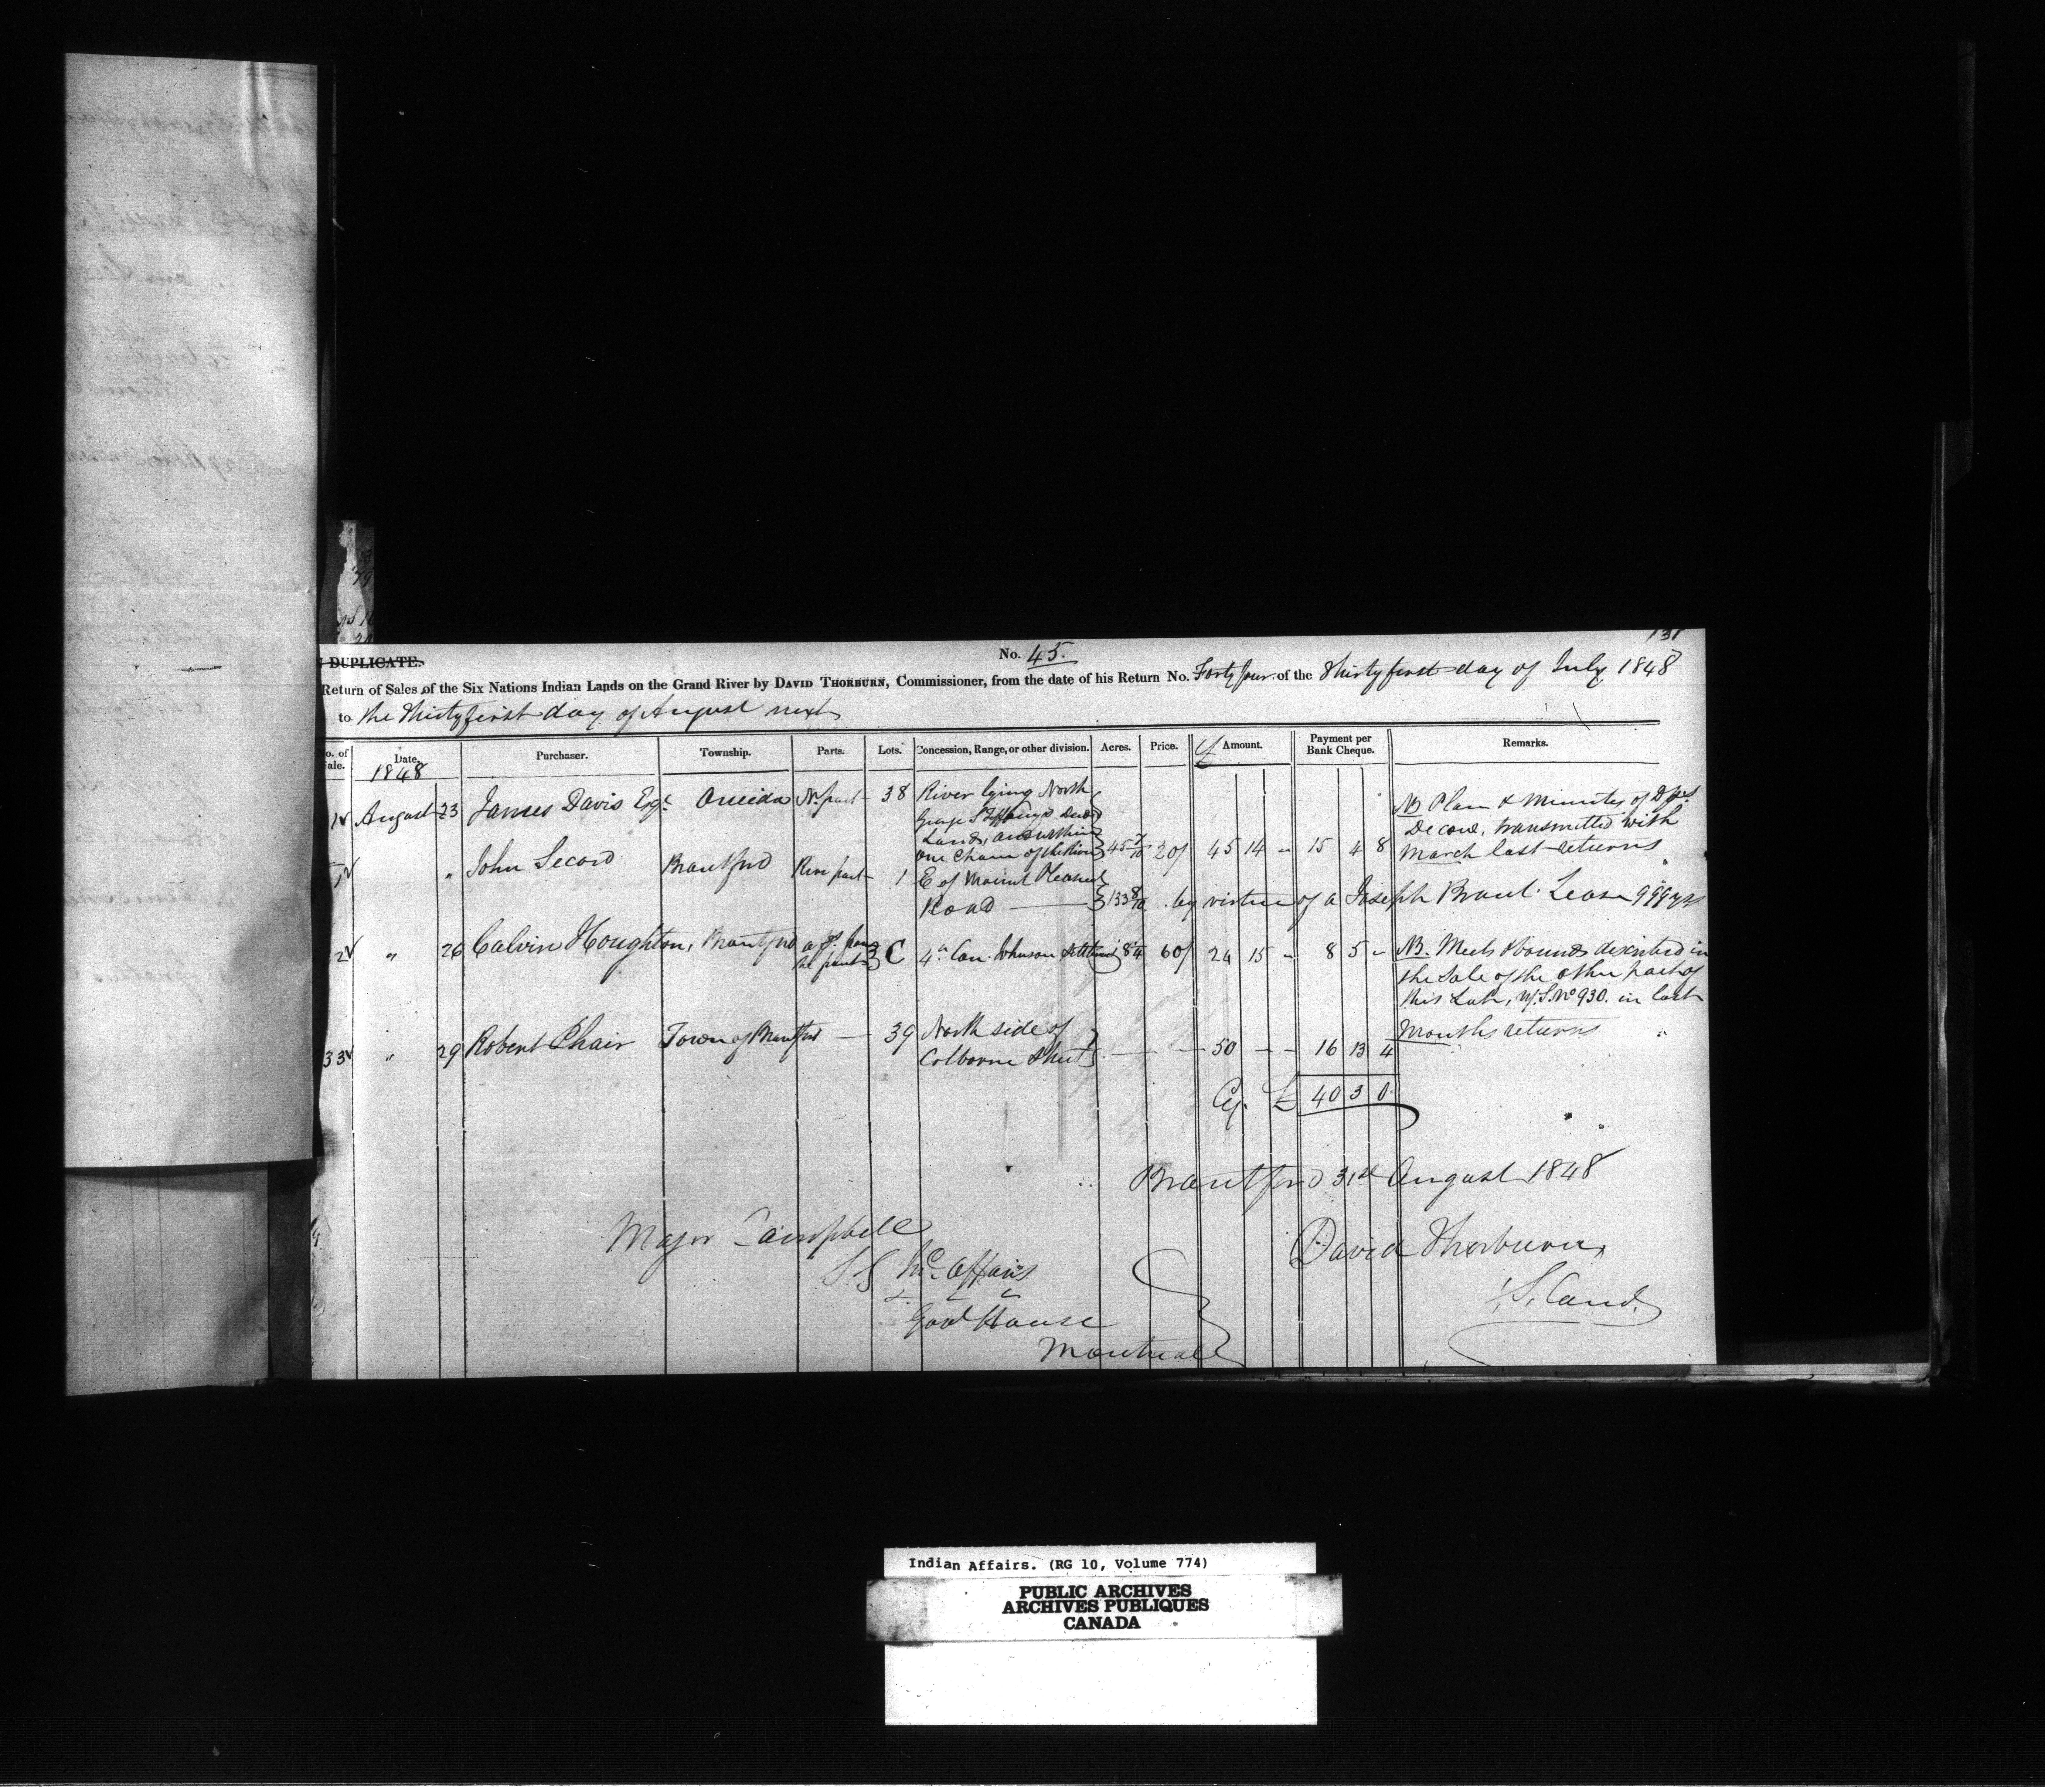 131
DUPLICATE. No. 45.
Return of Sales of the Six Nations Indian Lands on the Grand River by DAVID THORBURN, Commissioner, from the date of his Return No. Forty four of the Thirty first day of July 1848
to the Thirty first day of August next
o. of ale. Date. Purchaser. Township. Parts. Lots. Concession, Range, or other division. Acres. Price. Cy Amount. Payment per Bank Cheque. Remarks.
1848
1 August 23 James Davis Esqr. Oneida No. part 38 River lying North
Lands, and within
one Chain of the River 45 7/10 20/ 45 14 " 15 4 8
NB Plan & Minutes of Dps
Decow, transmitted with
March last returns
" John Secord Brantford Rere part 1 E of Mount Pleasant
Road 133 8/10 by virtue of a Joseph Brant Lease 999 yrs
2 " 26 Calvin Houghton, Brantford C 4th Con. Johnson Settlement 8 1/4 60/ 24 15 " 8 5 "
NB. Meets & bounds described in
the Sale of the other part of
this Lot, No 930. in last
Months returns
33 " 29 Robert Phair Town of Brantford — 39 North side of
Colborne Street — — 50 — — 16 13 4
Cy. £ 40 3 0
Brantford 31st August 1848
Major Campbell
S G In. Affairs
Govt House
Montreal
David Thorburn
Indian Affairs. (RG 10, Volume 774)
PUBLIC ARCHIVES
ARCHIVES PUBLIQUES
CANADA